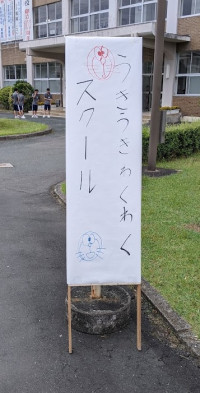 うきうきわくわく
スクール